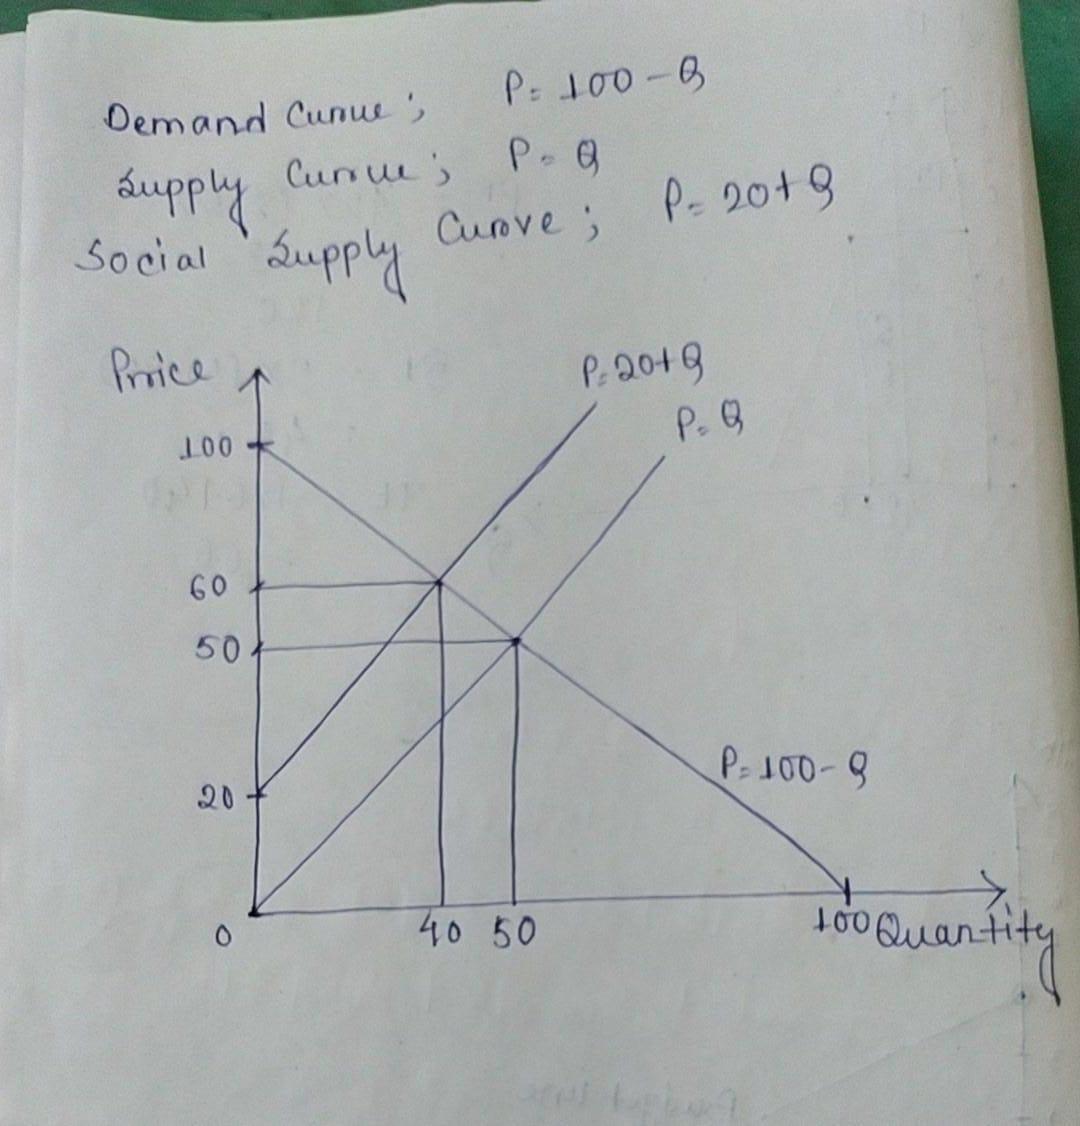 Demand Curve; P = 100 - Q
Supply Curve; P = Q
Social Supply Curve; P = 20 + Q
Price
P = 20 + Q
P = Q
100
60
50
P = 100 - Q
20
0
40 50
100 Quantity